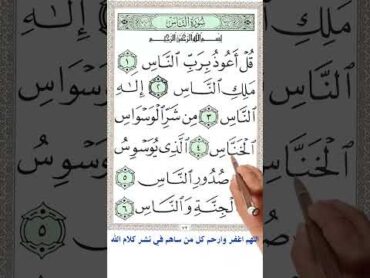 سُورَةُ النَّاسِ
بِسْمِ اللَّهِ الرَّحْمَٰنِ الرَّحِيمِ
قُلْ أَعُوذُ بِرَبِّ النَّاسِ ١
مَلِكِ النَّاسِ ٢ إِلَٰهِ
النَّاسِ ٣ مِن شَرِّ الْوَسْوَاسِ
الْخَنَّاسِ ٤ الَّذِي يُوَسْوِسُ
صُدُورِ النَّاسِ ٥
الْجِنَّةِ وَالنَّاسِ ٦
اللهم اغفر وارحم كل من ساهم في نشر كلام الله